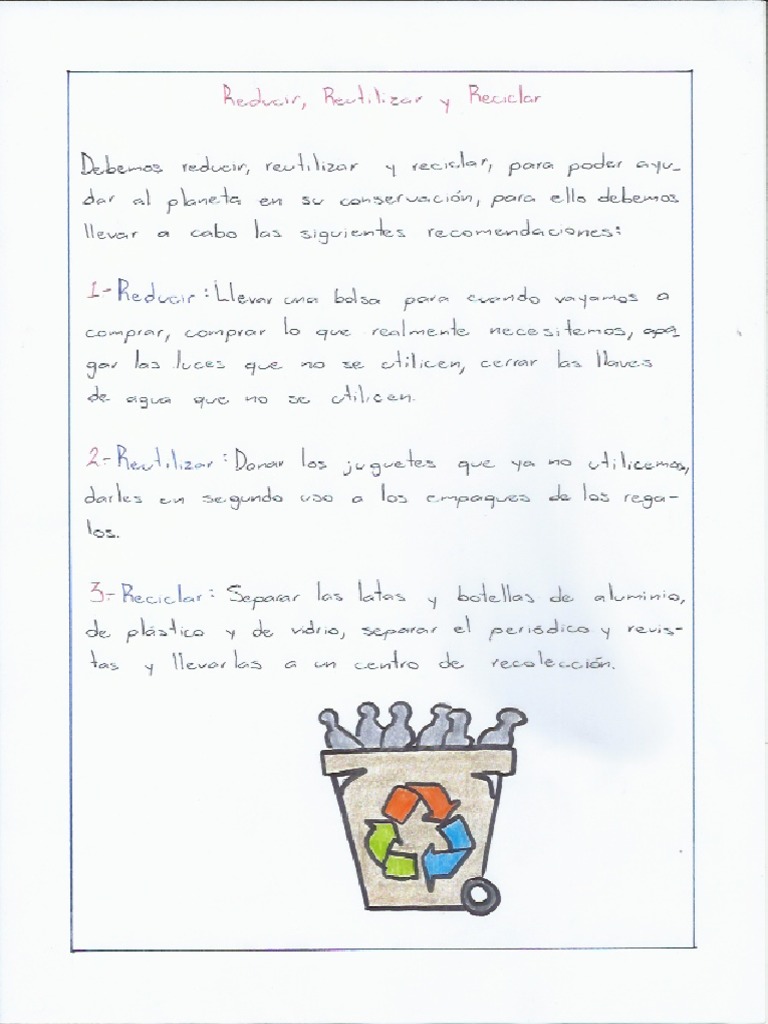 Reducir, Reutilizar y Reciclar
Debemos reducir, reutilizar y reciclar, para poder ayu-
dar al planeta en su conservación, para ello debemos
llevar a cabo las siguientes recomendaciones:
1-Reducir: Llevar una bolsa para cuando vayamos a
comprar, comprar lo que realmente necesitemos, apa
gar las luces que no se utilicen, cerrar las llaves
de agua que no se utilicen.
2-Reutilizar: Donar los juguetes que ya no utilicemos,
darles un segundo uso a los empaques de los rega-
los.
3-Reciclar: Separar las latas y botellas de aluminio,
de plástico y de vidrio, separar el periódico y revis-
tas y llevarlas a un centro de recolección.